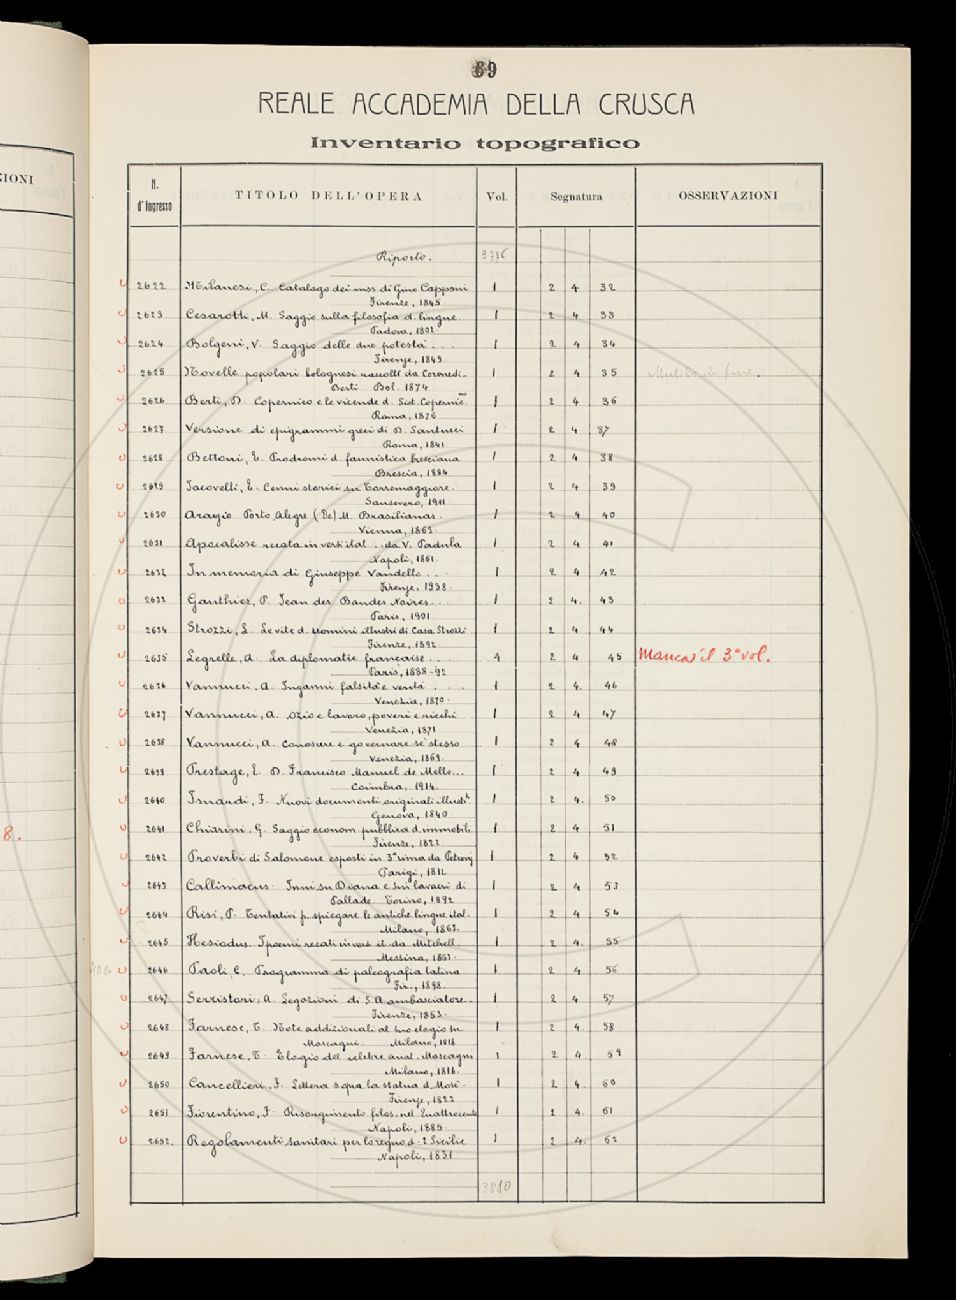 69
REALE ACCADEMIA DELLA CRUSCA
Inventario topografico
ZIONI
N. d'Ingresso TITOLO DELL'OPERA Vol. Segnatura OSSERVAZIONI
Riporto. 3776
2622 Milanesi, C. Catalogo dei mss di Gino Capponi 1 2 4 32
Firenze, 1845
2623 Cesarotti, M. Saggio sulla filosofia d. lingue. 1 2 4 33
Padova, 1802.
2624 Bolgeni, V. Saggio delle due potestà . . . 1 2 4 34
Firenze, 1849.
2625 Novelle popolari bolognesi raccolte da Coronedi- 1 2 4 35 Mutilo in fine.
Berti Bol. 1874
2626 Berti, D. Copernico e le vicende d. Sist. Copernic.no 1 2 4 36
Roma, 1876
2627 Versione di epigrammi greci di D. Santucci 1 2 4 37
Roma, 1841
2628 Bettoni, E. Prodromi d. faunistica bresciana 1 2 4 38
Brescia, 1884
2629 Jacovelli, E. Cenni storici su Torremaggiore. 1 2 4 39
Sansevero, 1911
2630 Araujo Porto Alegre (De) M. Brasilianas. 1 2 4 40
Vienna, 1863.
2631 Apocalisse recata in versi ital. . . da V. Padula 1 2 4 41
Napoli, 1861.
2632 In memoria di Giuseppe Vandelli . . . 1 2 4 42
Firenze, 1938.
2633 Gauthiez, P. Jean des Bandes Noires . . . 1 2 4. 43
Paris, 1901
2634 Strozzi, L. Le vite d. uomini illustri di Casa Strozzi 1 2 4 44
Firenze, 1892
2635 Legrelle, A. La diplomatie française . . . 4 2 4 45 Manca il 3° vol.
Paris, 1888-92
2636 Vannucci, A. Inganni falsità e verità . . . . 1 2 4. 46
Venezia, 1870.
2637 Vannucci, A. Ozio e lavoro, poveri e ricchi 1 2 4 47
Venezia, 1871
2638 Vannucci, A. Conoscere e governare se stesso 1 2 4 48
Venezia, 1869.
2639 Prestage, E. D. Francisco Manuel de Mello... 1 2 4 49
Coimbra, 1914.
2640 Isnardi, F. Nuovi documenti originali illustr. 1 2 4. 50
Genova, 1840.
2641 Chiarini, G. Saggio econom. pubblica d. immobili 1 2 4 51
Firenze, 1822
8.
2642 Proverbi di Salomone esposti in 3a rima da Petroni 1 2 4 52
Parigi, 1812
2643 Callimacus. Inni su Diana e sui lavacri di 1 2 4 53
Pallade. Torino, 1892
2644 Risi, P. Tentativi p. spiegare le antiche lingue ital. 1 2 4 54
Milano, 1863.
2645 Hesiodus. I poemi recati in versi it. da Mitchell 1 2 4. 55
Messina, 1863.
2646 Paoli, C. Programma di paleografia latina 1 2 4 56
Fir., 1898.
2647 Serristori, A. Legazioni di S. A. ambasciatore.. 1 2 4 57
Firenze, 1853.
2648 Farnese, T. Note addizionali al suo elogio su 1 2 4. 58
Mascagni. Milano, 1818
2649 Farnese, T. Elogio del celebre anat. Mascagni 1 2 4 59
Milano, 1816.
2650 Cancellieri, F. Lettera sopra la statua d. Mosè. 1 2 4. 60
Firenze, 1823
2651 Fiorentino, F. Risorgimento filos. nel Quattrocento 1 2 4. 61
Napoli, 1885.
2652. Regolamenti sanitari per lo regno d. 2 Sicilie 1 2 4. 62
Napoli, 1831
3810